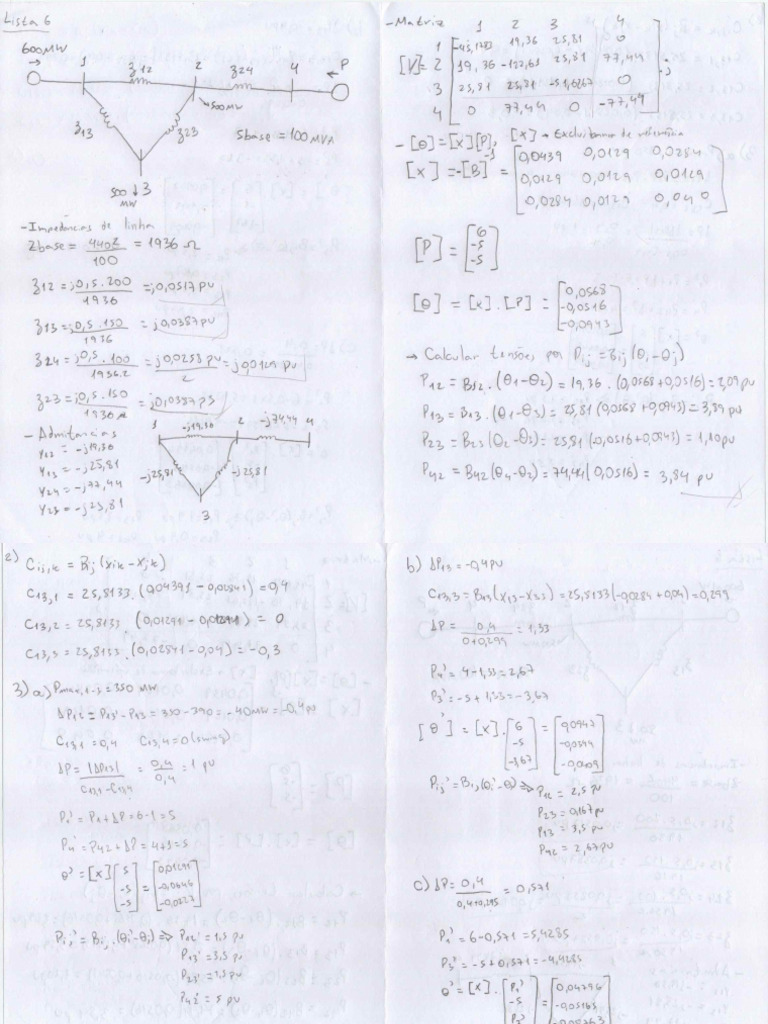 Lista 6
600MW
1
z12
z24
4
P
500MW
z13
z23
Sbase = 100MVA
500 ↓ 3
MW
- Impedâncias de linha
Zbase = 440² / 100 = 1936 Ω
z12 = j0,5.200 / 1936 = j0,0517pu
z13 = j0,5.150 / 1936 = j0,0387pu
z24 = j0,5.100 / 1936.2 = j0,0258 pu / 2 = j0,0129 pu
z23 = j0,5.150 / 1936 = j0,0387pu
- Admitâncias
y12 = -j19,36
y13 = -j25,81
y24 = -j77,44
y23 = -j25,81
1 -j19,36 2 -j77,44 4
-j25,81 -j25,81
3
- Matriz
1 2 3 4
1 -45,1713 19,36 25,81 0
[Y]= 2 19,36 -122,61 25,81 77,44 ;
3 25,81 25,81 -51,6267 0
4 0 77,44 0 -77,44
- [θ] = [X][P], [X] → Excluir barra de referência
[X] = -[B]⁻¹ =
0,0439 0,0129 0,0284
0,0129 0,0129 0,0129
0,0284 0,0129 0,040
[P] = [6 -5 -5]
[θ] = [X].[P] = [0,0568 -0,0516 -0,0943]
→ Calcular tensões por Pij = Bij(θi-θj)
P12 = B12.(θ1-θ2) = 19,36.(0,0568+0,0516) = 2,09pu
P13 = B13.(θ1-θ3) = 25,81(0,0568+0,0943) = 3,89 pu
P23 = B23(θ2-θ3) = 25,81(-0,0516+0,0943) = 1,10pu
P42 = B42(θ4-θ2) = 74,44(0,0516) = 3,84 pu
2) Cij,k = Bij(xik-xjk)
C13,1 = 25,8133.(0,04391-0,02841) = 0,4
C13,2 = 25,8133 (0,01291-0,01291) = 0
C13,3 = 25,8133.(0,02841-0,04) = -0,3
3) a) Pmax,1-3 = 350 MW
ΔP12 = P13'-P13 = 350-390 = -40MW = -0,4pu
C13,1 = 0,4 C13,4 = 0 (swing)
ΔP = |ΔP13| / C13,1-C13,4 = 0,4 / 0,4 = 1 pu
P1' = P1+ΔP = 6-1 = 5
P4' = P42+ΔP = 4+1 = 5
θ' = [X] [5 -5 -5] = [0,01291 -0,0646 -0,0]
Pij' = Bij.(θi'-θj) ⇒ P12' = 1,5 pu
P13' = 3,5 pu
P23' = 1,5 pu
P42' = 5 pu
b) ΔP13 = -0,4pu
C13,3 = B13(X13-X33) = 25,8133(-0,0284+0,04) = 0,299
ΔP = 0,4 / 0+0,299 = 1,33
P4' = 4-1,33 = 2,67
P3' = -5+1,33 = -3,67
[θ'] = [X].[6 -5 -3,67] = [0,0947 -0,0344]
Pij' = Bij(θi'-θj) ⇒ P12 = 2,5 pu
P23 = 0,167pu
P13 = 3,5 pu
P42 = 2,67 pu
c) ΔP = 0,4 / 0,4+0,295 = 0,571
P1' = 6-0,571 = 5,4285
P3' = -5+0,571 = -4,4285
θ' = [X].[P1' -5 P3'] = [0,04296 -0,05165]